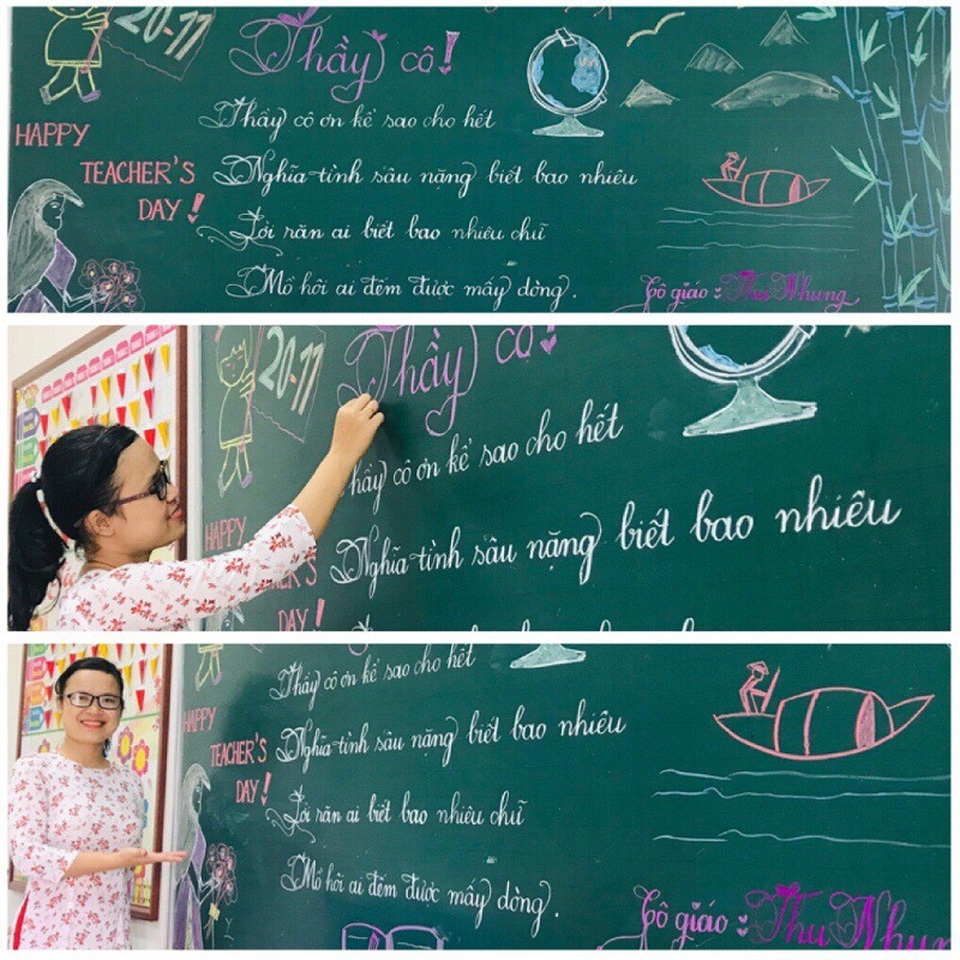 20-11
Thầy cô!
Thầy cô ơn kể sao cho hết
Nghĩa tình sâu nặng biết bao nhiêu
Lời răn ai biết bao nhiêu chữ
Mồ hôi ai đếm được mấy dòng.
HAPPY
TEACHER'S
DAY!
Cô giáo : Thu Nhung
20-11
Thầy cô!
hầy cô ơn kể sao cho hết
Nghĩa tình sâu nặng biết bao nhiêu
HAPPY
DAY!
Thầy cô ơn kể sao cho hết
Nghĩa tình sâu nặng biết bao nhiêu
Lời răn ai biết bao nhiêu chữ
Mồ hôi ai đếm được mấy dòng.
HAPPY
TEACHER'S
DAY!
Cô giáo : Thu Nhung